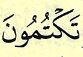 تَكْتُمُونَ